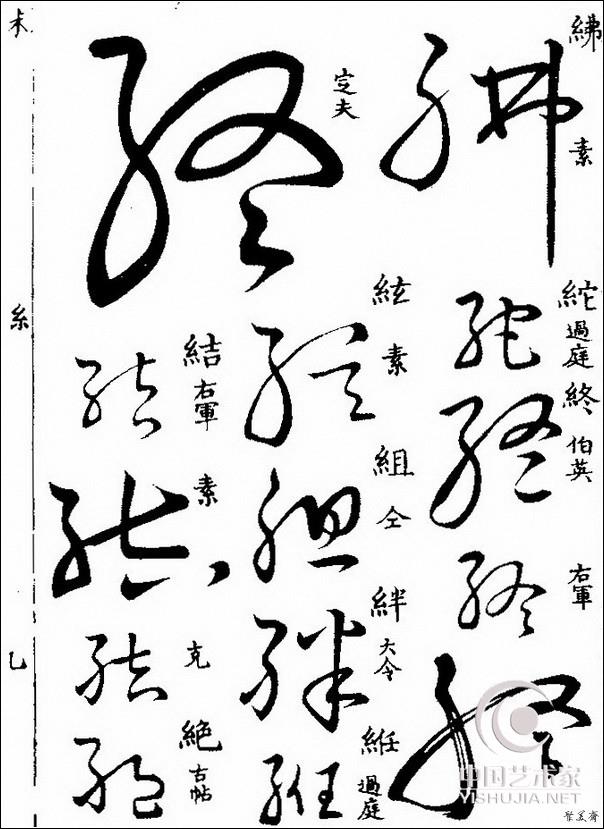 紼
素
紽
過庭
終
伯英
右軍
定夫
絃
素
組
仝
絆
大令
紝
過庭
結
右軍
素
克
絕
古帖
糸
乙
中国艺术家
YISHUJIA.NET